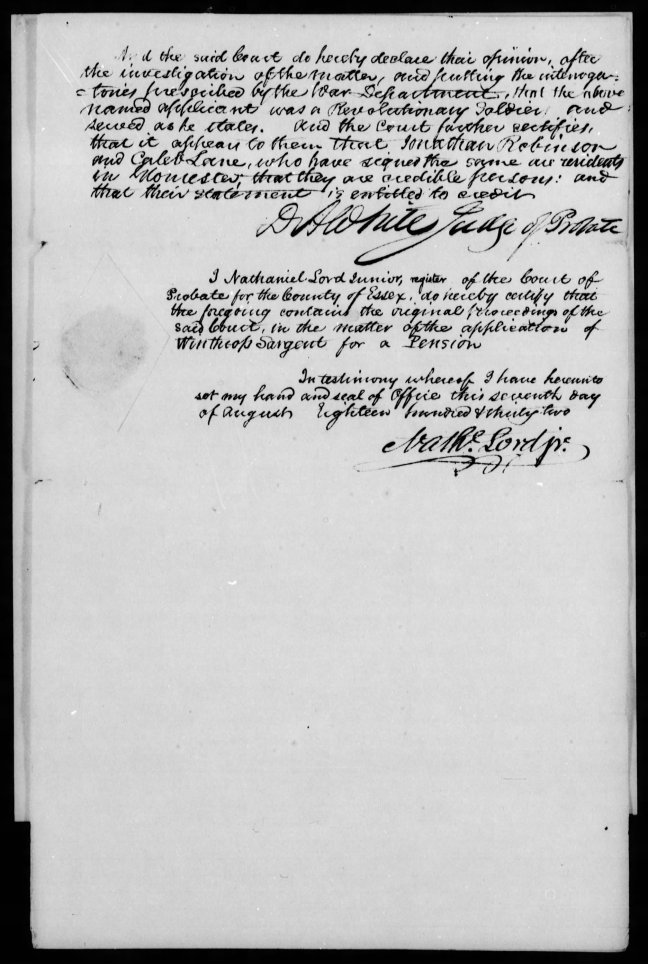 And the said Court do hereby declare their opinion, after
the investigation of the matter, and putting the interroga=
=tories prescribed by the War Department, that the above
named applicant was a Revolutionary Soldier and
served as he states. And the Court further certifies,
that it appears to them that Jonathan Robinson
and Caleb Lane, who have signed the same are residents
in Gloucester, that they are credible persons: and
that their statement is entitled to credit
D A White Judge of Probate
I Nathaniel Lord Junior, register of the Court of
Probate for the County of Essex, do hereby certify that
the foregoing contains the original proceedings of the
said Court, in the matter of the application of
Winthrop Sargent for a Pension
In testimony whereof I have hereunto
set my hand and seal of Office this seventh day
of August Eighteen hundred & thirty two
Nathl. Lord jr.